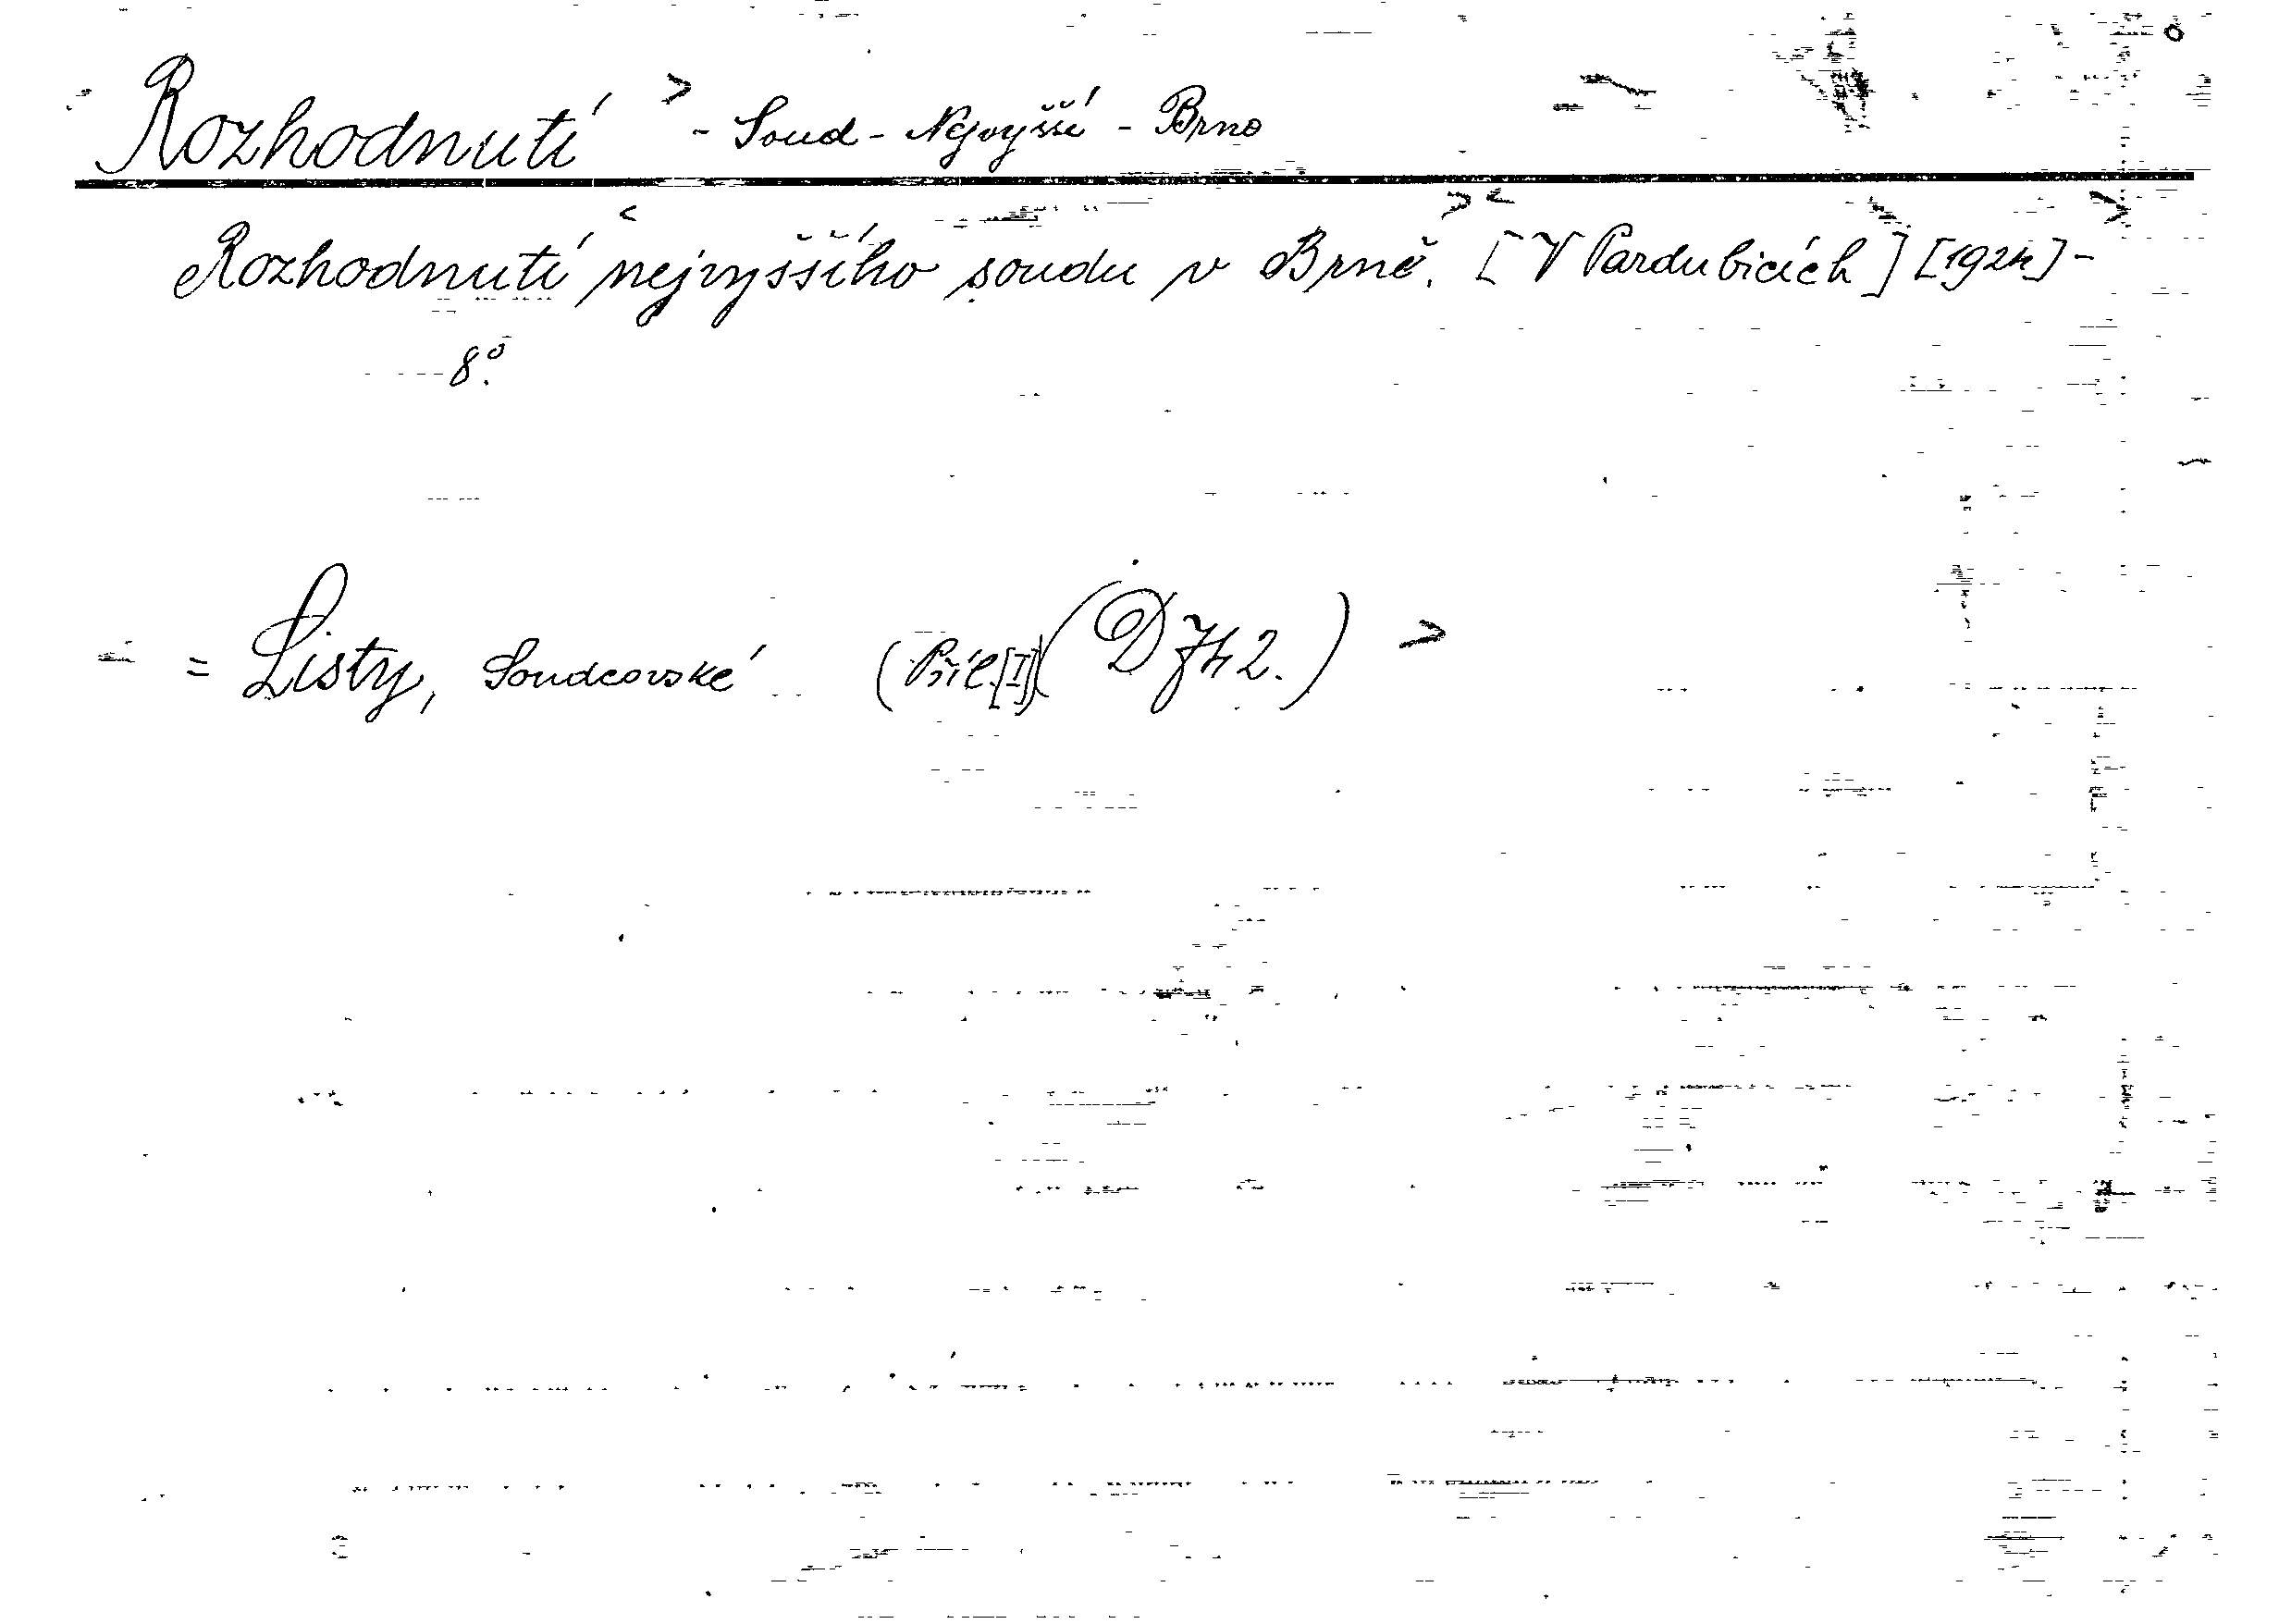 Rozhodnutí > - Soud - Nejvyšší - Brno
Rozhodnutí nejvyššího soudu v Brně. [V Pardubicích] [1924] -
8º.
= Listy, Soudcovské (Příl.[I]) (D 742.) >